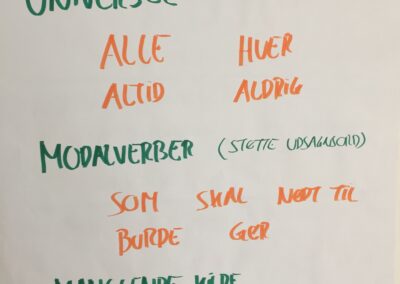 ALLE HVER
ALTID ALDRIG
MODALVERBER (STØTTE UDSAGNSORD)
SOM SKAL NØDT TIL
BURDE GØR
MANGLENDE